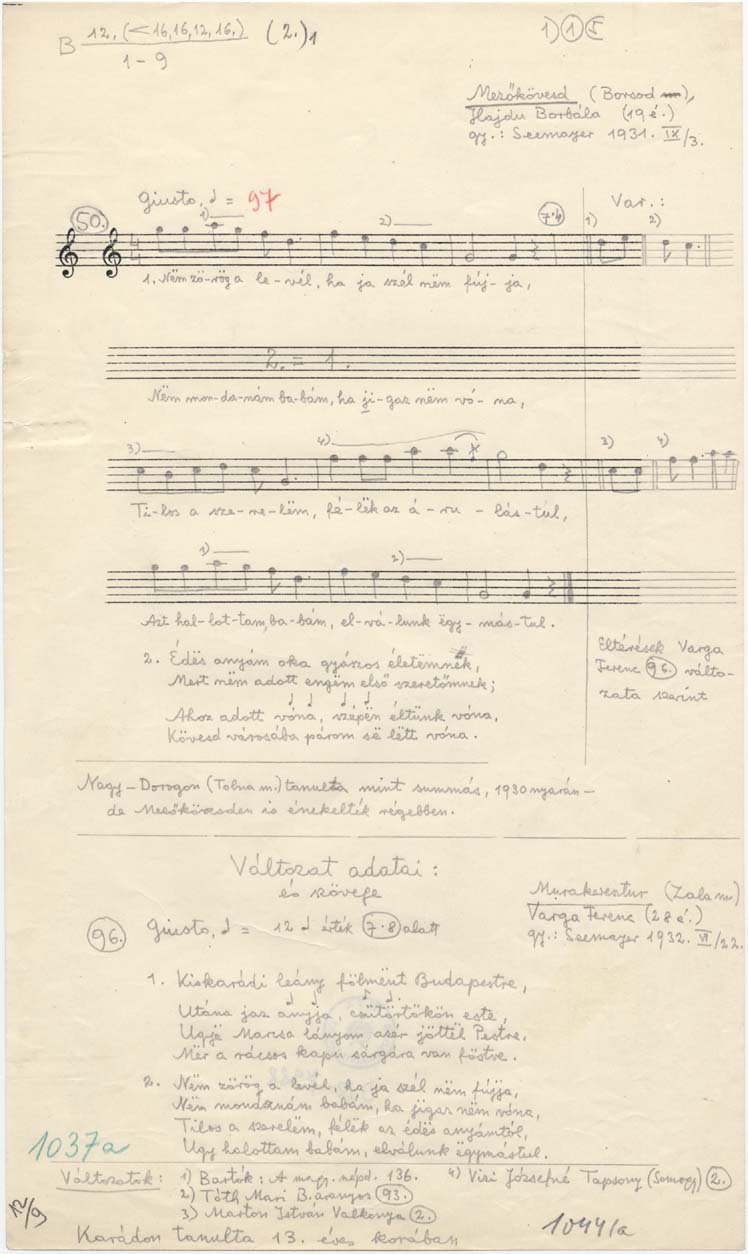 B 12. (<16,16,12,16.) (2.)1
1-9
1) 1 5
Mezőkövesd (Borsod m),
Hajdu Borbála (19 é.)
gy.: Seemayer 1931. IX/3.
Giusto, ♩ = 97
50.
1)
2)
7·4
Var.:
1) 2)
1. Nëm zö-rög a le-vél, ha ja szél nëm fúj-ja,
2. = 1.
Nëm mon-da-nám ba-bám, ha ji-gaz nëm vó-na,
3)
4)
3) 4)
Ti-los a sze-re-lëm, fé-lëk az á-ru-lás-túl,
1)
2)
Azt hal-lot-tam, ba-bám, el-vá-lunk ëgy-más-tul.
2. Édës anyám oka gyászos életëmnek,
Mert nëm adott engëm első szeretőmnek;
Ahoz adott vóna, szépën éltünk vóna,
Kövesd városába párom së lëtt vóna.
Eltérések Varga
Ferenc 96. válto-
zata szerint
Nagy-Dorogon (Tolna m.) tanulta mint summás, 1930 nyarán-
de Mezőkövesden is énekelték régebben.
Változat adatai:
és szövege
Murakeresztur (Zala m)
Varga Ferenc (28 é.)
gy.: Seemayer 1932. VI/22.
96. Giusto, ♩ = 12 ♩ érték 7·8 alatt
1. Kiskarádi leány fölmënt Budapestre,
Utána jaz anyja, csütörtökön este,
Ugyë Marcsa lányom asér jöttél Pestre,
Mër a rácsos kapu sárgára van föstve.
2. Nëm zörög a levél, ha ja szél nëm fújja,
Nëm mondanám babám, ha jigaz nëm vóna,
Tilos a szerelëm, félëk az édës anyámtól,
Ugy halottam babám, elválunk ëgymástul.
1037a
Változatok: 1) Bartók: A magy. népd. 136. 4) Vizi Józsefné Tapsony (Somogy) 2.
2) Tóth Mari B.aranyos 93.
3) Marton István Valkonya 2.
12/9
1044/a
Karádon tanulta 13. éves korában